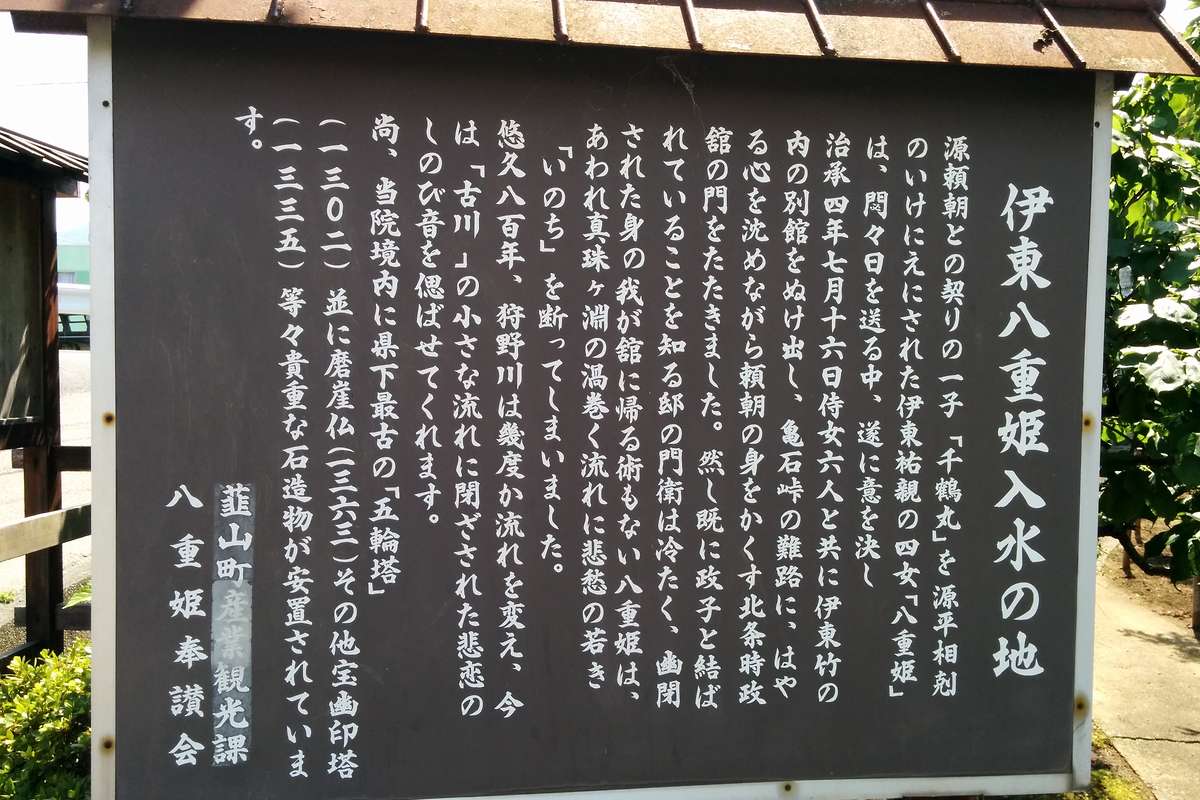 伊東八重姫入水の地
源頼朝との契りの一子「千鶴丸」を源平相剋
のいけにえにされた伊東祐親の四女「八重姫」
は、悶々日を送る中、遂に意を決し
治承四年七月十六日侍女六人と共に伊東竹の
内の別館をぬけ出し、亀石峠の難路に、はや
る心を沈めながら頼朝の身をかくす北条時政
舘の門をたたきました。然し既に政子と結ば
れていることを知る邸の門衛は冷たく、幽閉
された身の我が舘に帰る術もない八重姫は、
あわれ真珠ヶ淵の渦巻く流れに悲愁の若き
「いのち」を断ってしまいました。
悠久八百年、狩野川は幾度か流れを変え、今
は「古川」の小さな流れに閉ざされた悲恋の
しのび音を偲ばせてくれます。
尚、当院境内に県下最古の「五輪塔」
(一三〇二)並に磨崖仏(一三六三)その他宝幽印塔
(一三三五)等々貴重な石造物が安置されていま
す。
韮山町産業観光課
八重姫奉讃会